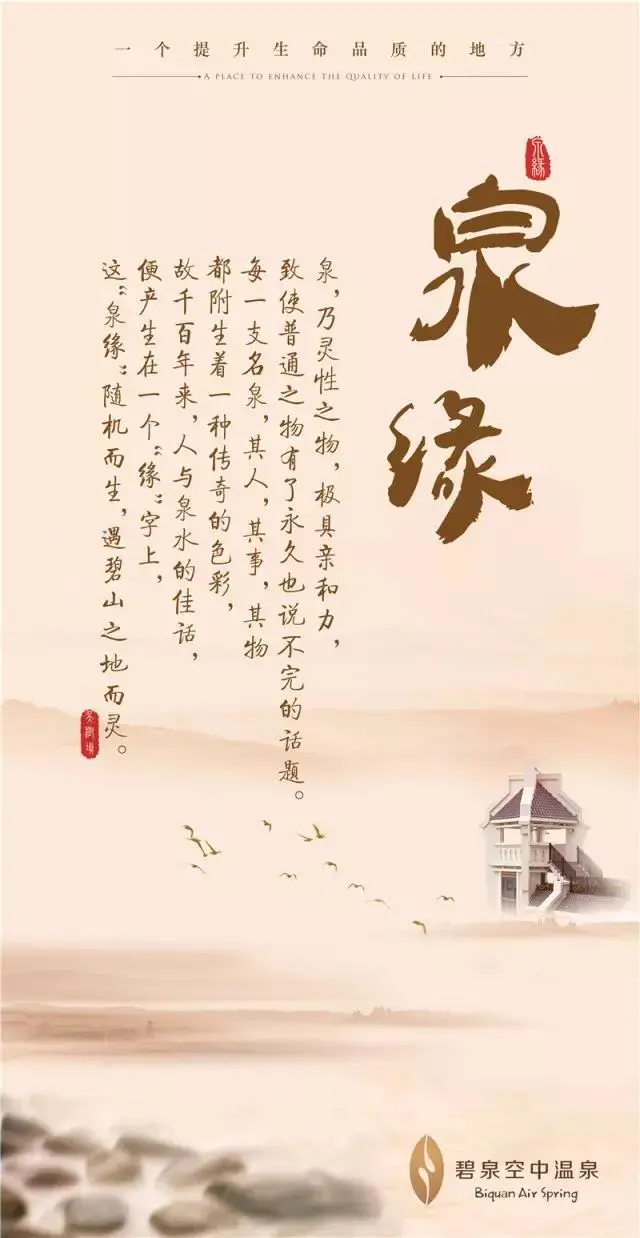 一个提升生命品质的地方
A PLACE TO ENHANCE THE QUALITY OF LIFE
泉缘
泉缘
泉，乃灵性之物，极具亲和力，
致使普通之物有了永久也说不完的话题。
每一支名泉，其人，其事，其物
都附生着一种传奇的色彩，
故千百年来，人与泉水的佳话，
便产生在一个“缘”字上，
这“泉缘”随机而生，遇碧山之地而灵。
碧泉空中温泉
Biquan Air Spring